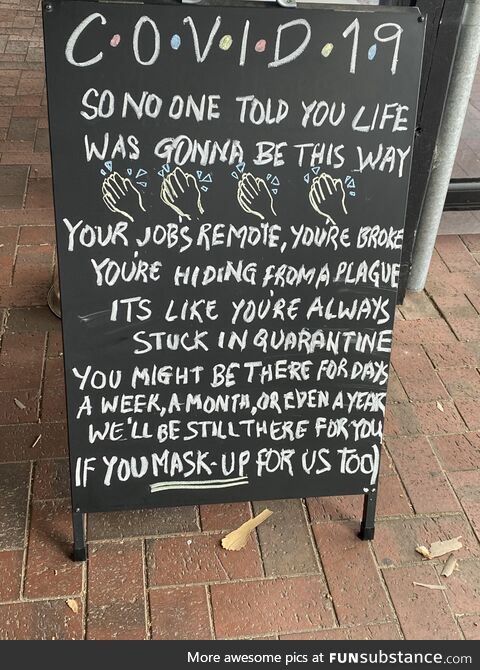 C·O·V·I·D·19
SO NO ONE TOLD YOU LIFE
WAS GONNA BE THIS WAY
YOUR JOBS REMOTE, YOU'RE BROKE
YOU'RE HIDING FROM A PLAGUE
ITS LIKE YOU'RE ALWAYS
STUCK IN QUARANTINE
YOU MIGHT BE THERE FOR DAYS
A WEEK, A MONTH, OR EVEN A YEAR
WE'LL BE STILL THERE FOR YOU
IF YOU MASK-UP FOR US TOO
More awesome pics at FUNsubstance.com